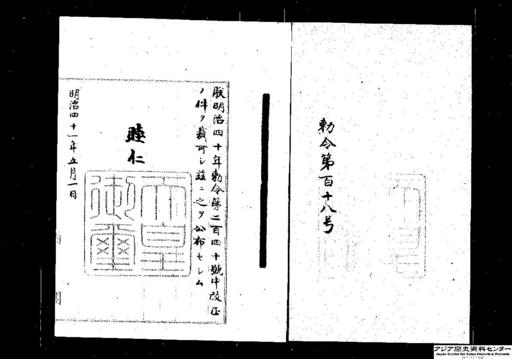 勅令第百十八号
朕明治四十年勅令第二百四十號中改正
ノ件ヲ裁可シ茲ニ之ヲ公布セシム
睦仁
天皇
御璽
明治四十一年五月一日
アジア歴史資料センター
Japan Center for Asian Historical Records